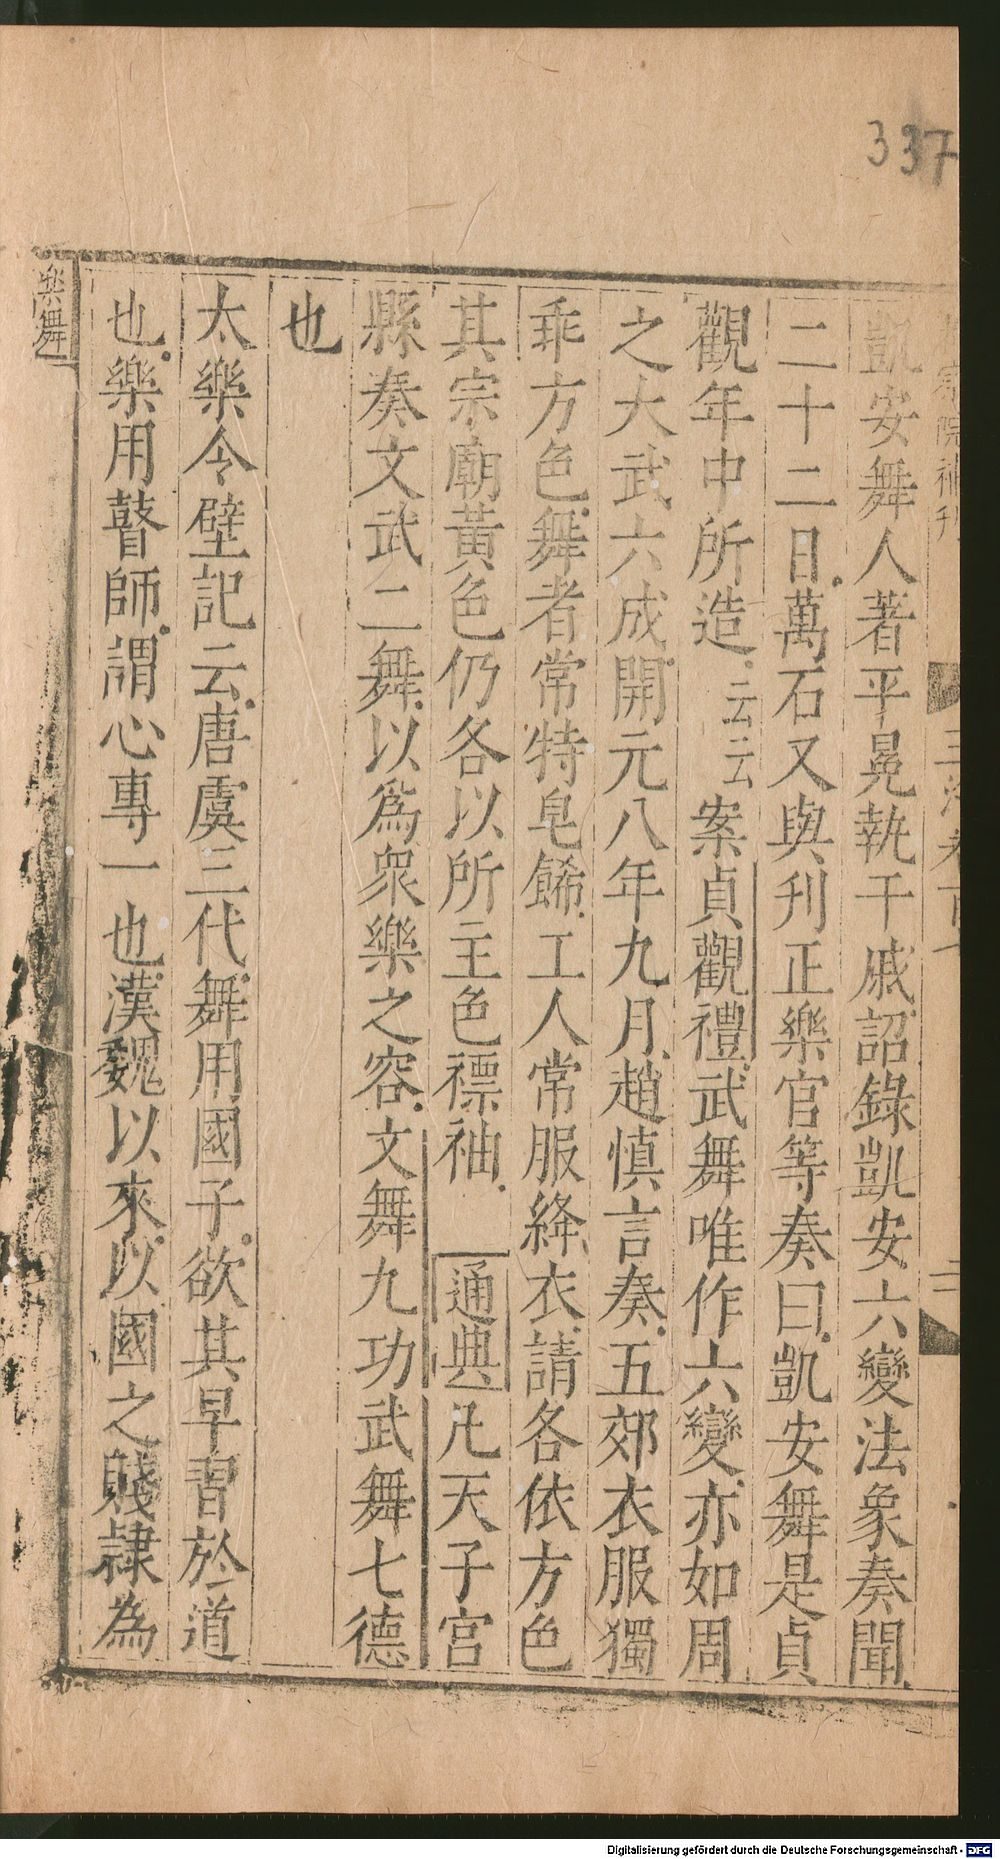 337
凱安舞人著平冕執干戚詔錄凱安六變法象奏聞
二十二日萬石又與刋正樂官等奏曰凱安舞是貞
觀年中所造云云案貞觀禮武舞唯作六變亦如周
之大武六成開元八年九月趙慎言奏五郊衣服獨
乖方色舞者常特皂餙工人常服絳衣請各依方色
其宗廟黃色仍各以所主色褾袖 通典凡天子宮
縣奏文武二舞以爲衆樂之容文舞九功武舞七德
也
太樂令壁記云唐虞三代舞用國子欲其早習於道
也樂用瞽師謂心專一也漢魏以來以國之賤隷為
樂舞
Digitalisierung gefördert durch die Deutsche Forschungsgemeinschaft - DFG